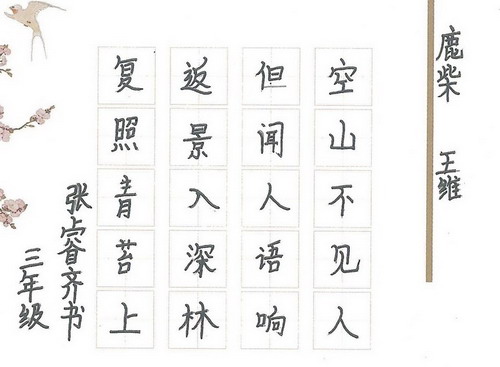 鹿柴
王维
空山不见人
但闻人语响
返景入深林
复照青苔上
张睿齐书
三年级